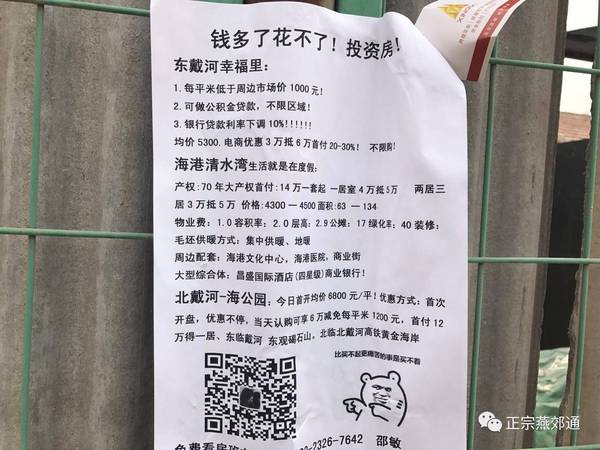 钱多了花不了！投资房！
东戴河幸福里：
1. 每平米低于周边市场价 1000 元！
2. 可做公积金贷款，不限区域！
3. 银行贷款利率下调 10%!!!!!!
均价 5300. 电商优惠 3 万抵 6 万首付 20-30%！ 不限购！
海港清水湾生活就是在度假：
产权：70 年大产权首付：14 万一套起 一居室 4 万抵 5 万 两居三
居 3 万抵 5 万 价格：4300 — 4500 面积：63 — 134
物业费：1.0 容积率：2.0 层高：2.9 公摊：17 绿化率：40 装修：
毛坯供暖方式：集中供暖、地暖
周边配套：海港文化中心，海港医院，商业街
大型综合体：昌盛国际酒店（四星级）商业银行！
北戴河-海公园：今日首开均价 6800 元/平！优惠方式：首次
开盘，优惠不停，当天认购可享 6 万减免每平米 1200 元，首付 12
万得一居、东临戴河 东观碣石山，北临北戴河高铁黄金海岸
比买不起更痛苦的事是买不着
免费看房班
2326-7642 邵敏
正宗燕郊通